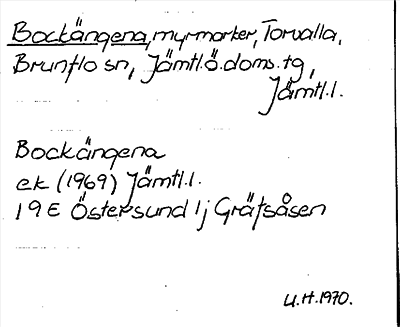 Bockängena, myrmarker, Torvalla,
Brunflo sn, Jämtl.ö.doms.tg,
Jämtl.l.
Bockängena
ek (1969) Jämtl.l.
19E Östersund 1j Gräfsåsen
U.H.1970.